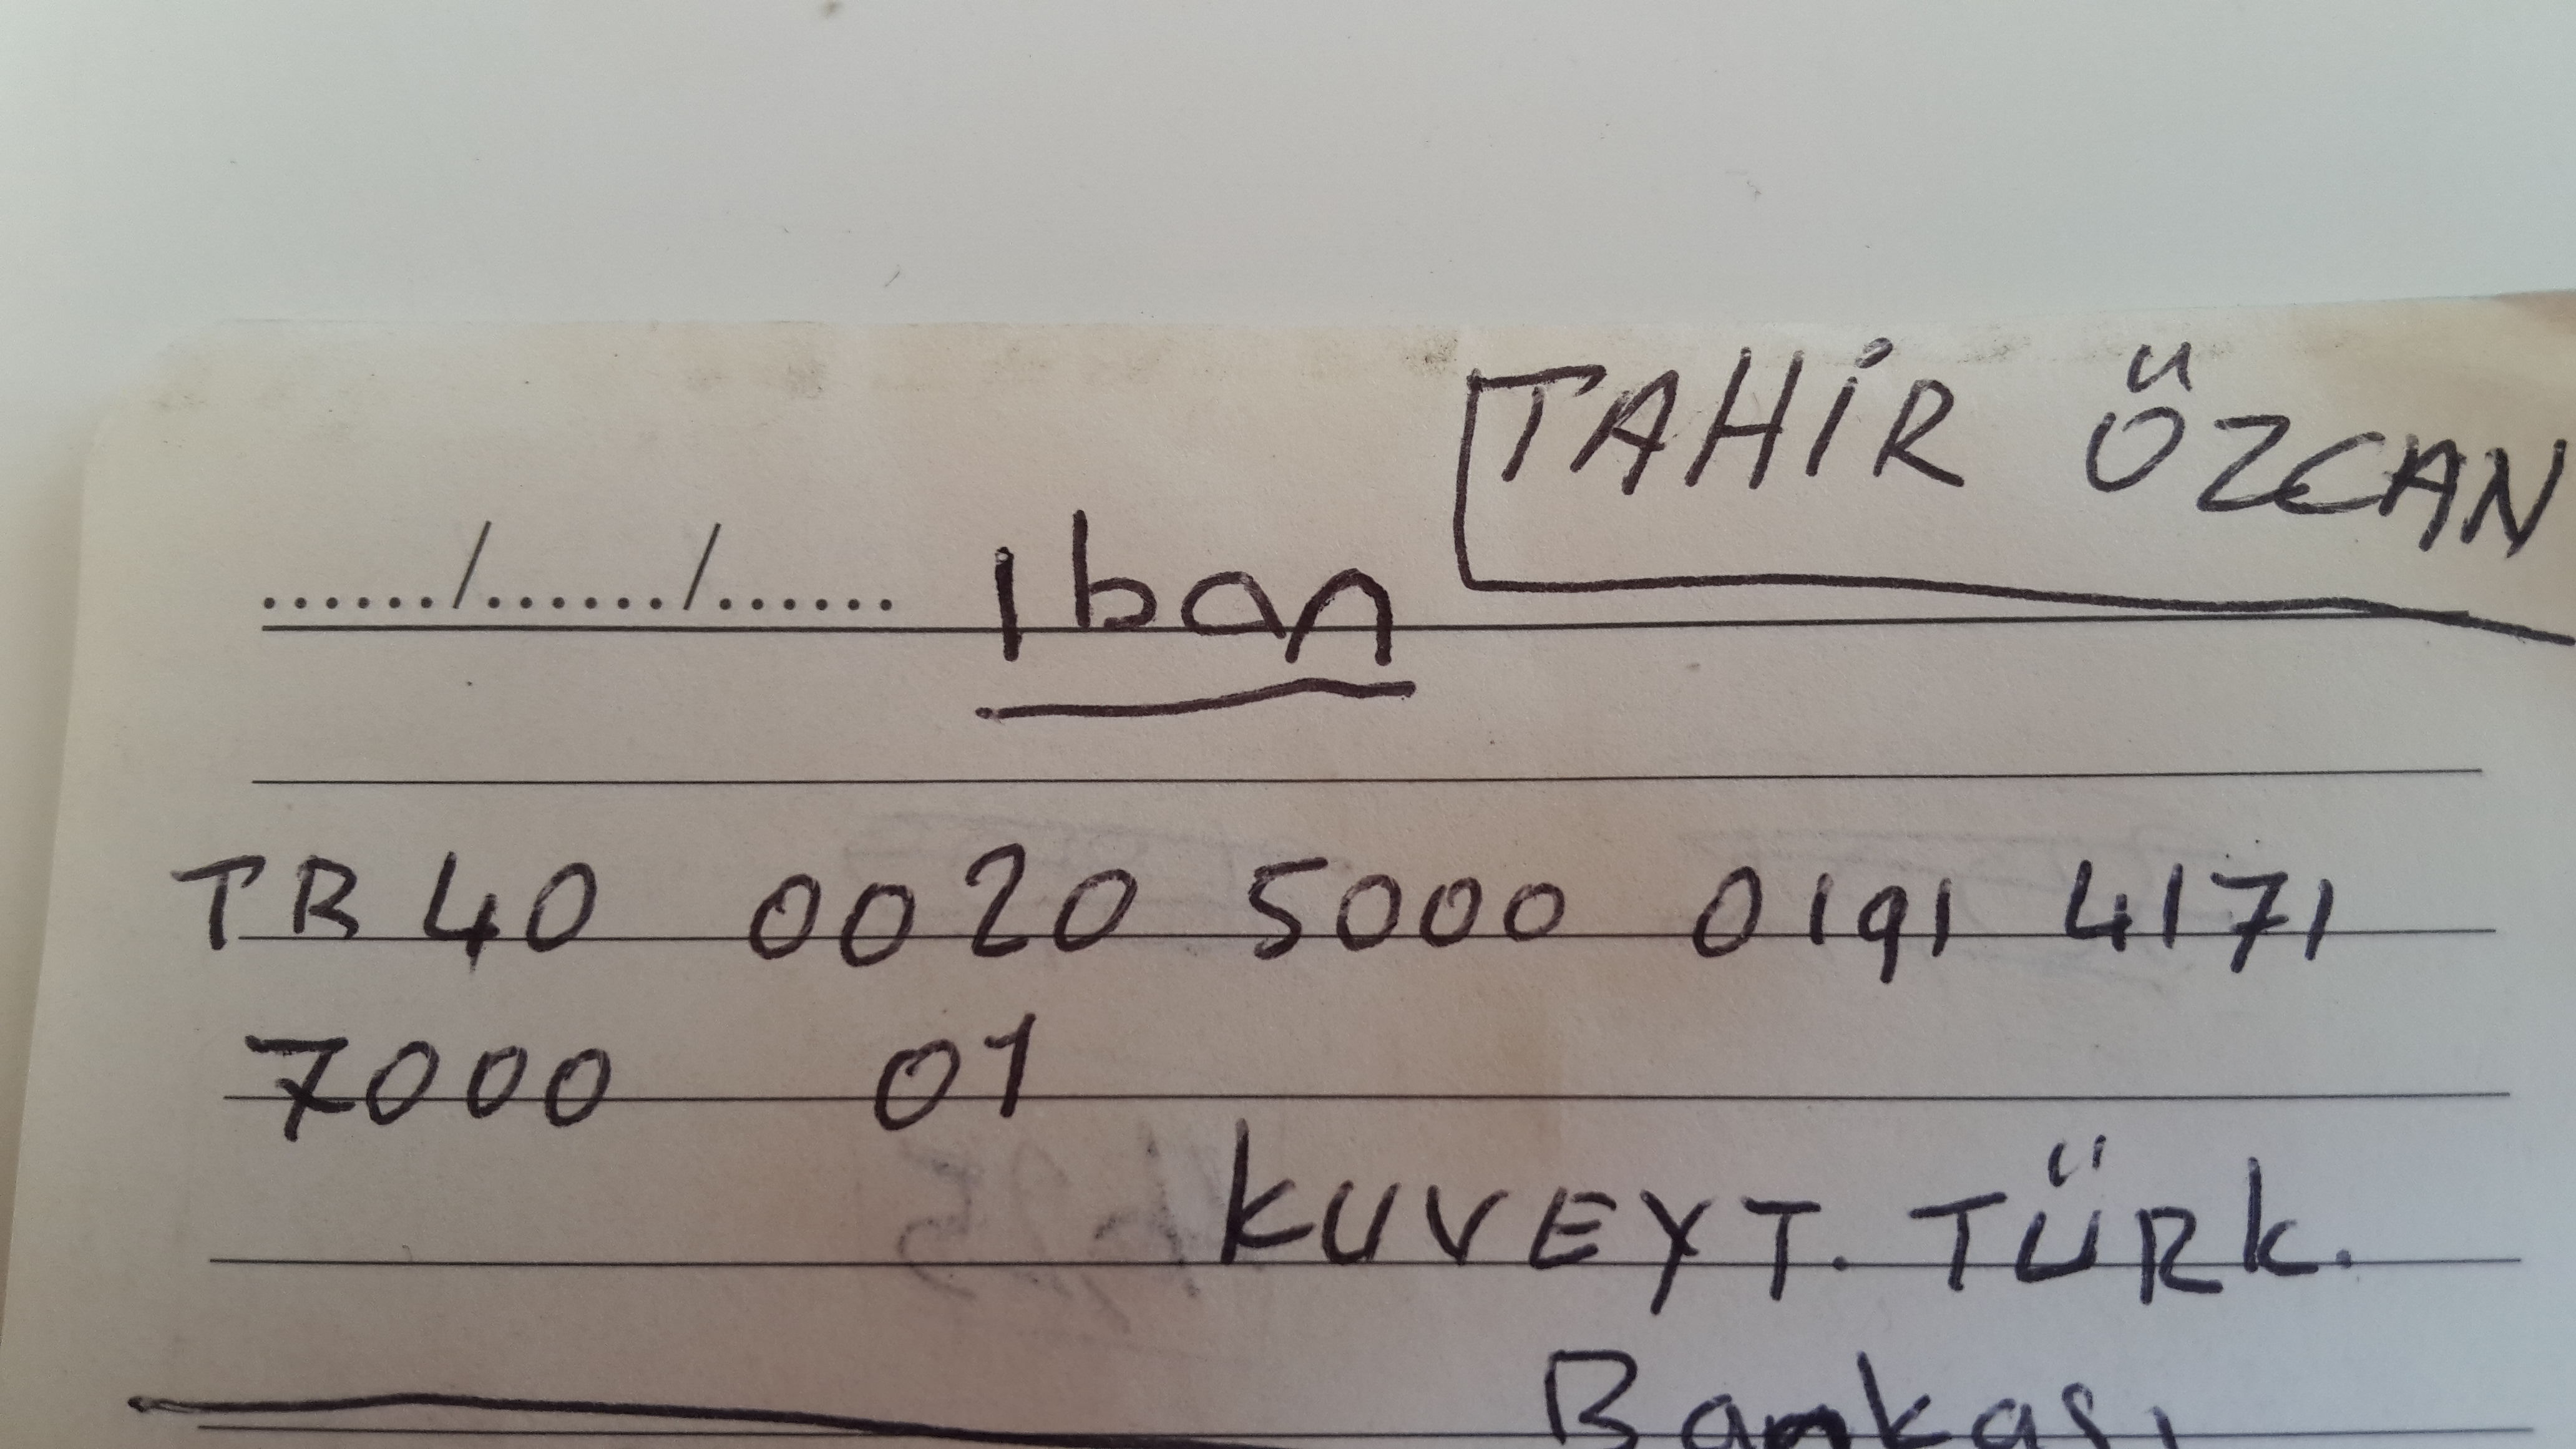 TAHİR ÖZCAN
....../......./...... Iban
TR40 0020 5000 0191 4171
7000 01
KUVEYT. TÜRK.
Bankası